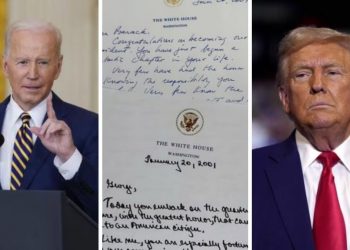 THE WHITE HOUSE
WASHINGTON
Barack,
Congratulations on becoming our
You have just begun a
Chapter in your life.
Very few have had the honor
the responsibility you
Very few know the
THE WHITE HOUSE
WASHINGTON
January 20, 2001
George,
Today you embark on the greatest
with the greatest honor, that can
to an American citizen.
Like me, you are especially fortunate